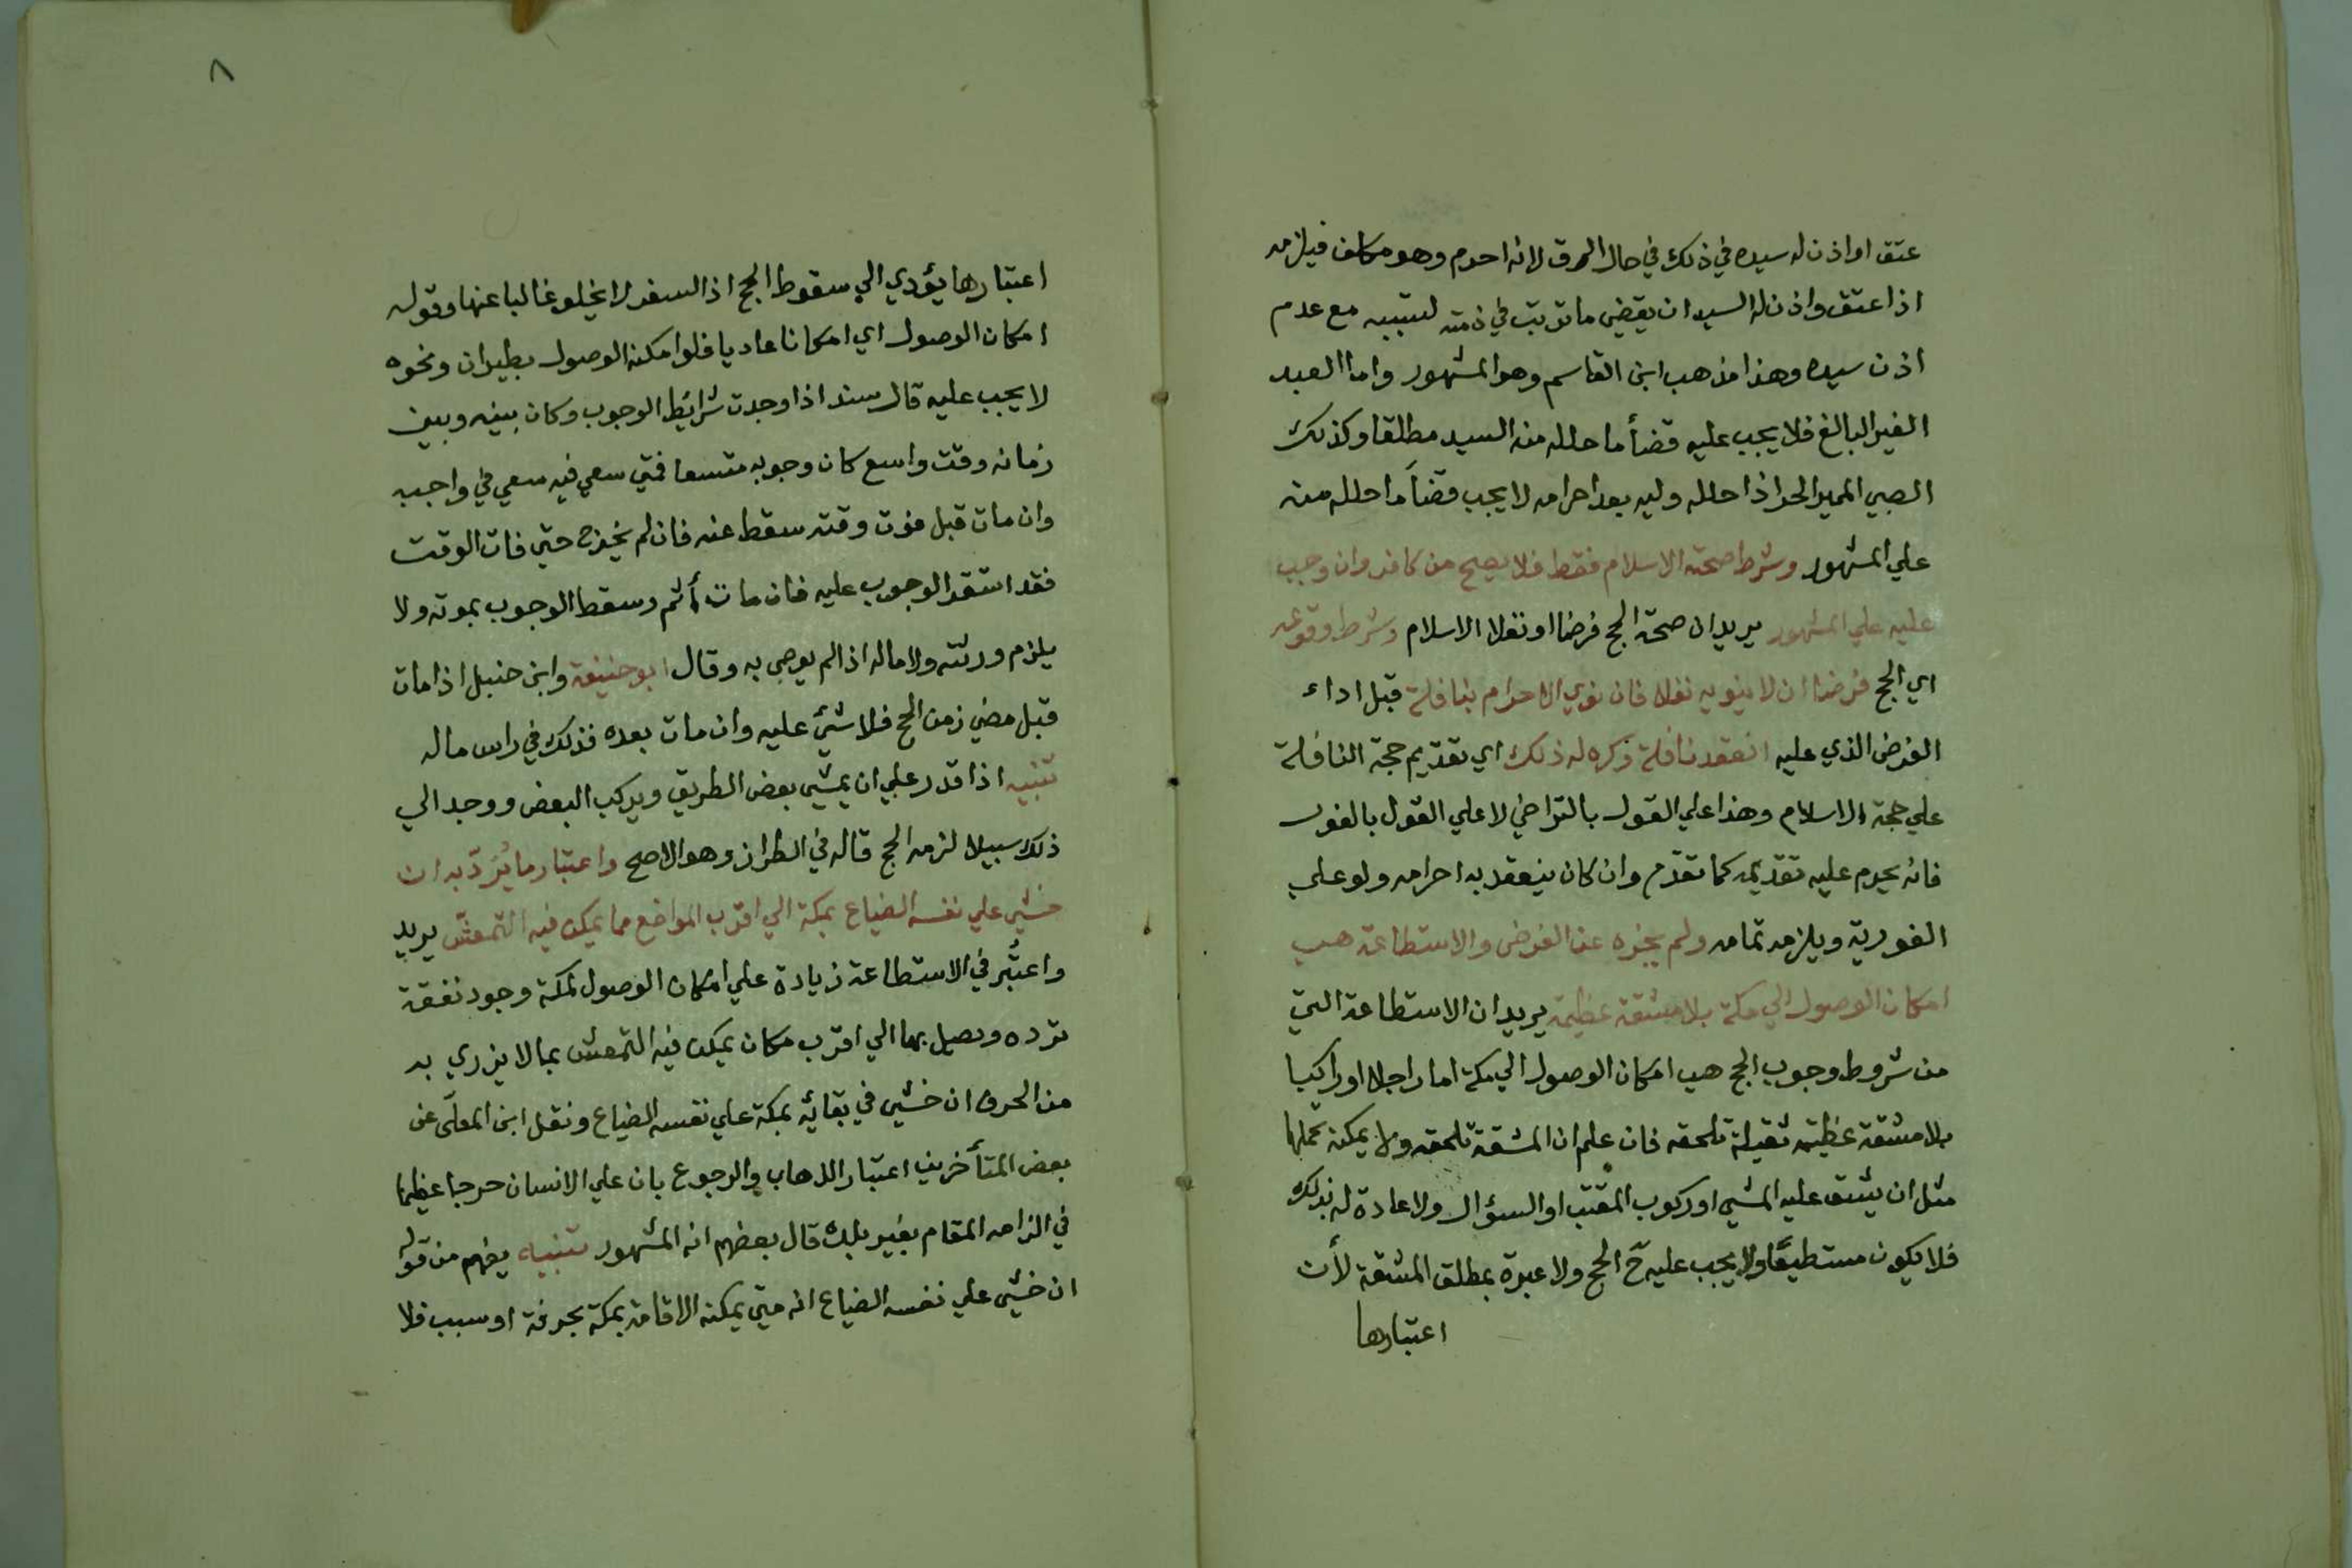 عتق او اذن له سيده في ذلك في حال الرق لانه احرم وهو مكلف فيلزمه
اذا عتق واذن له السيد ان يقضي ما ترتب في ذمته لتسببه مع عدم
اذن سيده وهذا مذهب ابن القاسم وهو المشهور واما العبد
الغير البالغ فلا يجب عليه قضأ ما حلله منه السيد مطلقا وكذلك
الصبي المميز الحر اذا حلله وليه بعد احرامه لا يجب قضأ ما حلله منه
علي المشهور وشرط صحته الاسلام فقط فلا يصح من كافر وان وجب
عليه علي المشهور يريد ان صحة الحج فرضا او نفلا الاسلام وشرط وقوعه
اي الحج فرضا ان لا ينويه نفلا فان نوي الاحرام بنافلة قبل اداء
الفرض الذي عليه انعقد نافلة وكره له ذلك اي تقديم حجة النافلة
علي حجة الاسلام وهذا علي القول بالتراخي لا علي القول بالفور
فانه يحرم عليه تقديمه كما تقدّم وان كان ينعقد به احرامه ولو علي
الفورية ويلزمه تمامه ولم يجزه عن الفرض والاستطاعة هي
امكان الوصول الي مكة بلا مشقة عظيمة يريد ان الاستطاعة التي
من شروط وجوب الحج هي امكان الوصول الي مكة اما راجلا او راكبا
بلا مشقة عظيمة ثقيلة تلحقه فان علم ان المشقة تلحقه ولا يمكنه تحملها
مثل ان يشق عليه المشي او ركوب المقتب او السؤال ولا عادة له بذلك
فلا يكون مستطيعًا ولا يجب عليه حّ الحج ولا عبرة بمطلق المشقة لأن
اعتبارها
٨
اعتبارها يؤدي الي سقوط الحج اذ السفر لا يخلو غالبا عنها وقوله
امكان الوصول اي امكانا عاديا فلو امكنه الوصول بطيران ونحوه
لا يجب عليه قال سند اذا وجدت شرائط الوجوب وكان بينه وبين
زمانه وقت واسع كان وجوبه متسعا فمتي سعي فيه سعي في واجبه
وان مات قبل فوت وقته سقط عنه فان لم يخرج حتي فات الوقت
فقد استقر الوجوب عليه فان مات أثم وسقط الوجوب بموته ولا
يلزم ورثته ولا ماله اذا لم يوصي به وقال ابو حنيفة وابن حنبل اذا مات
قبل مضي زمن الحج فلا شيئ عليه وان مات بعده فذلك في راس ماله
تنبيه اذا قدر علي ان يمشي بعض الطريق ويركب البعض ووجد الي
ذلك سبيلا لزمه الحج قاله في الطراز وهو الاصح واعتبار ما يُرَدّ به ان
خشي علي نفسه الضياع بمكة الي اقرب المواضع مما يمكن فيه التمعشّ يريد
واعتُبر في الاستطاعة زيادة علي امكان الوصول لمكة وجود نفقة
ترده ويصل بها الي اقرب مكان يمكن فيه التمعش بما لا يزري به
من الحرف ان خشي في بقائه بمكة علي نفسه الضياع ونقل ابن المعلّى عن
بعض المتأخرين اعتبار الذهاب والرجوع بان علي الانسان حرجا عظيما
في الزامه المقام بغير بلده قال بعضهم انه المشهور تنبيه يفهم من قوله
ان خشي علي نفسه الضياع انه متي يمكنه الاقامة بمكة بحرفة او سبب فلا